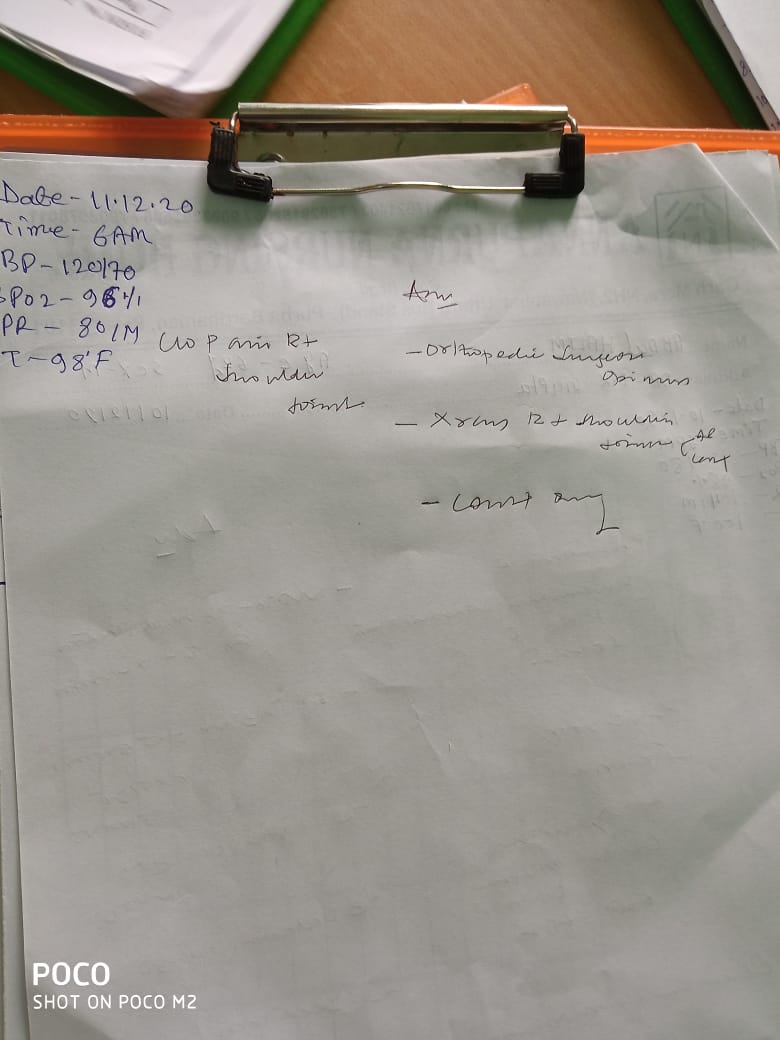 Date - 11.12.20
Time - 6AM
BP - 120/70
SPO2 - 96%
PR - 80/M
T - 98°F
C/o Pain Rt
Shoulder
Joint
Adv
- Orthopedic Surgeon
Opinion
- Xray Rt Shoulder
Joint AP
Lat
POCO
SHOT ON POCO M2